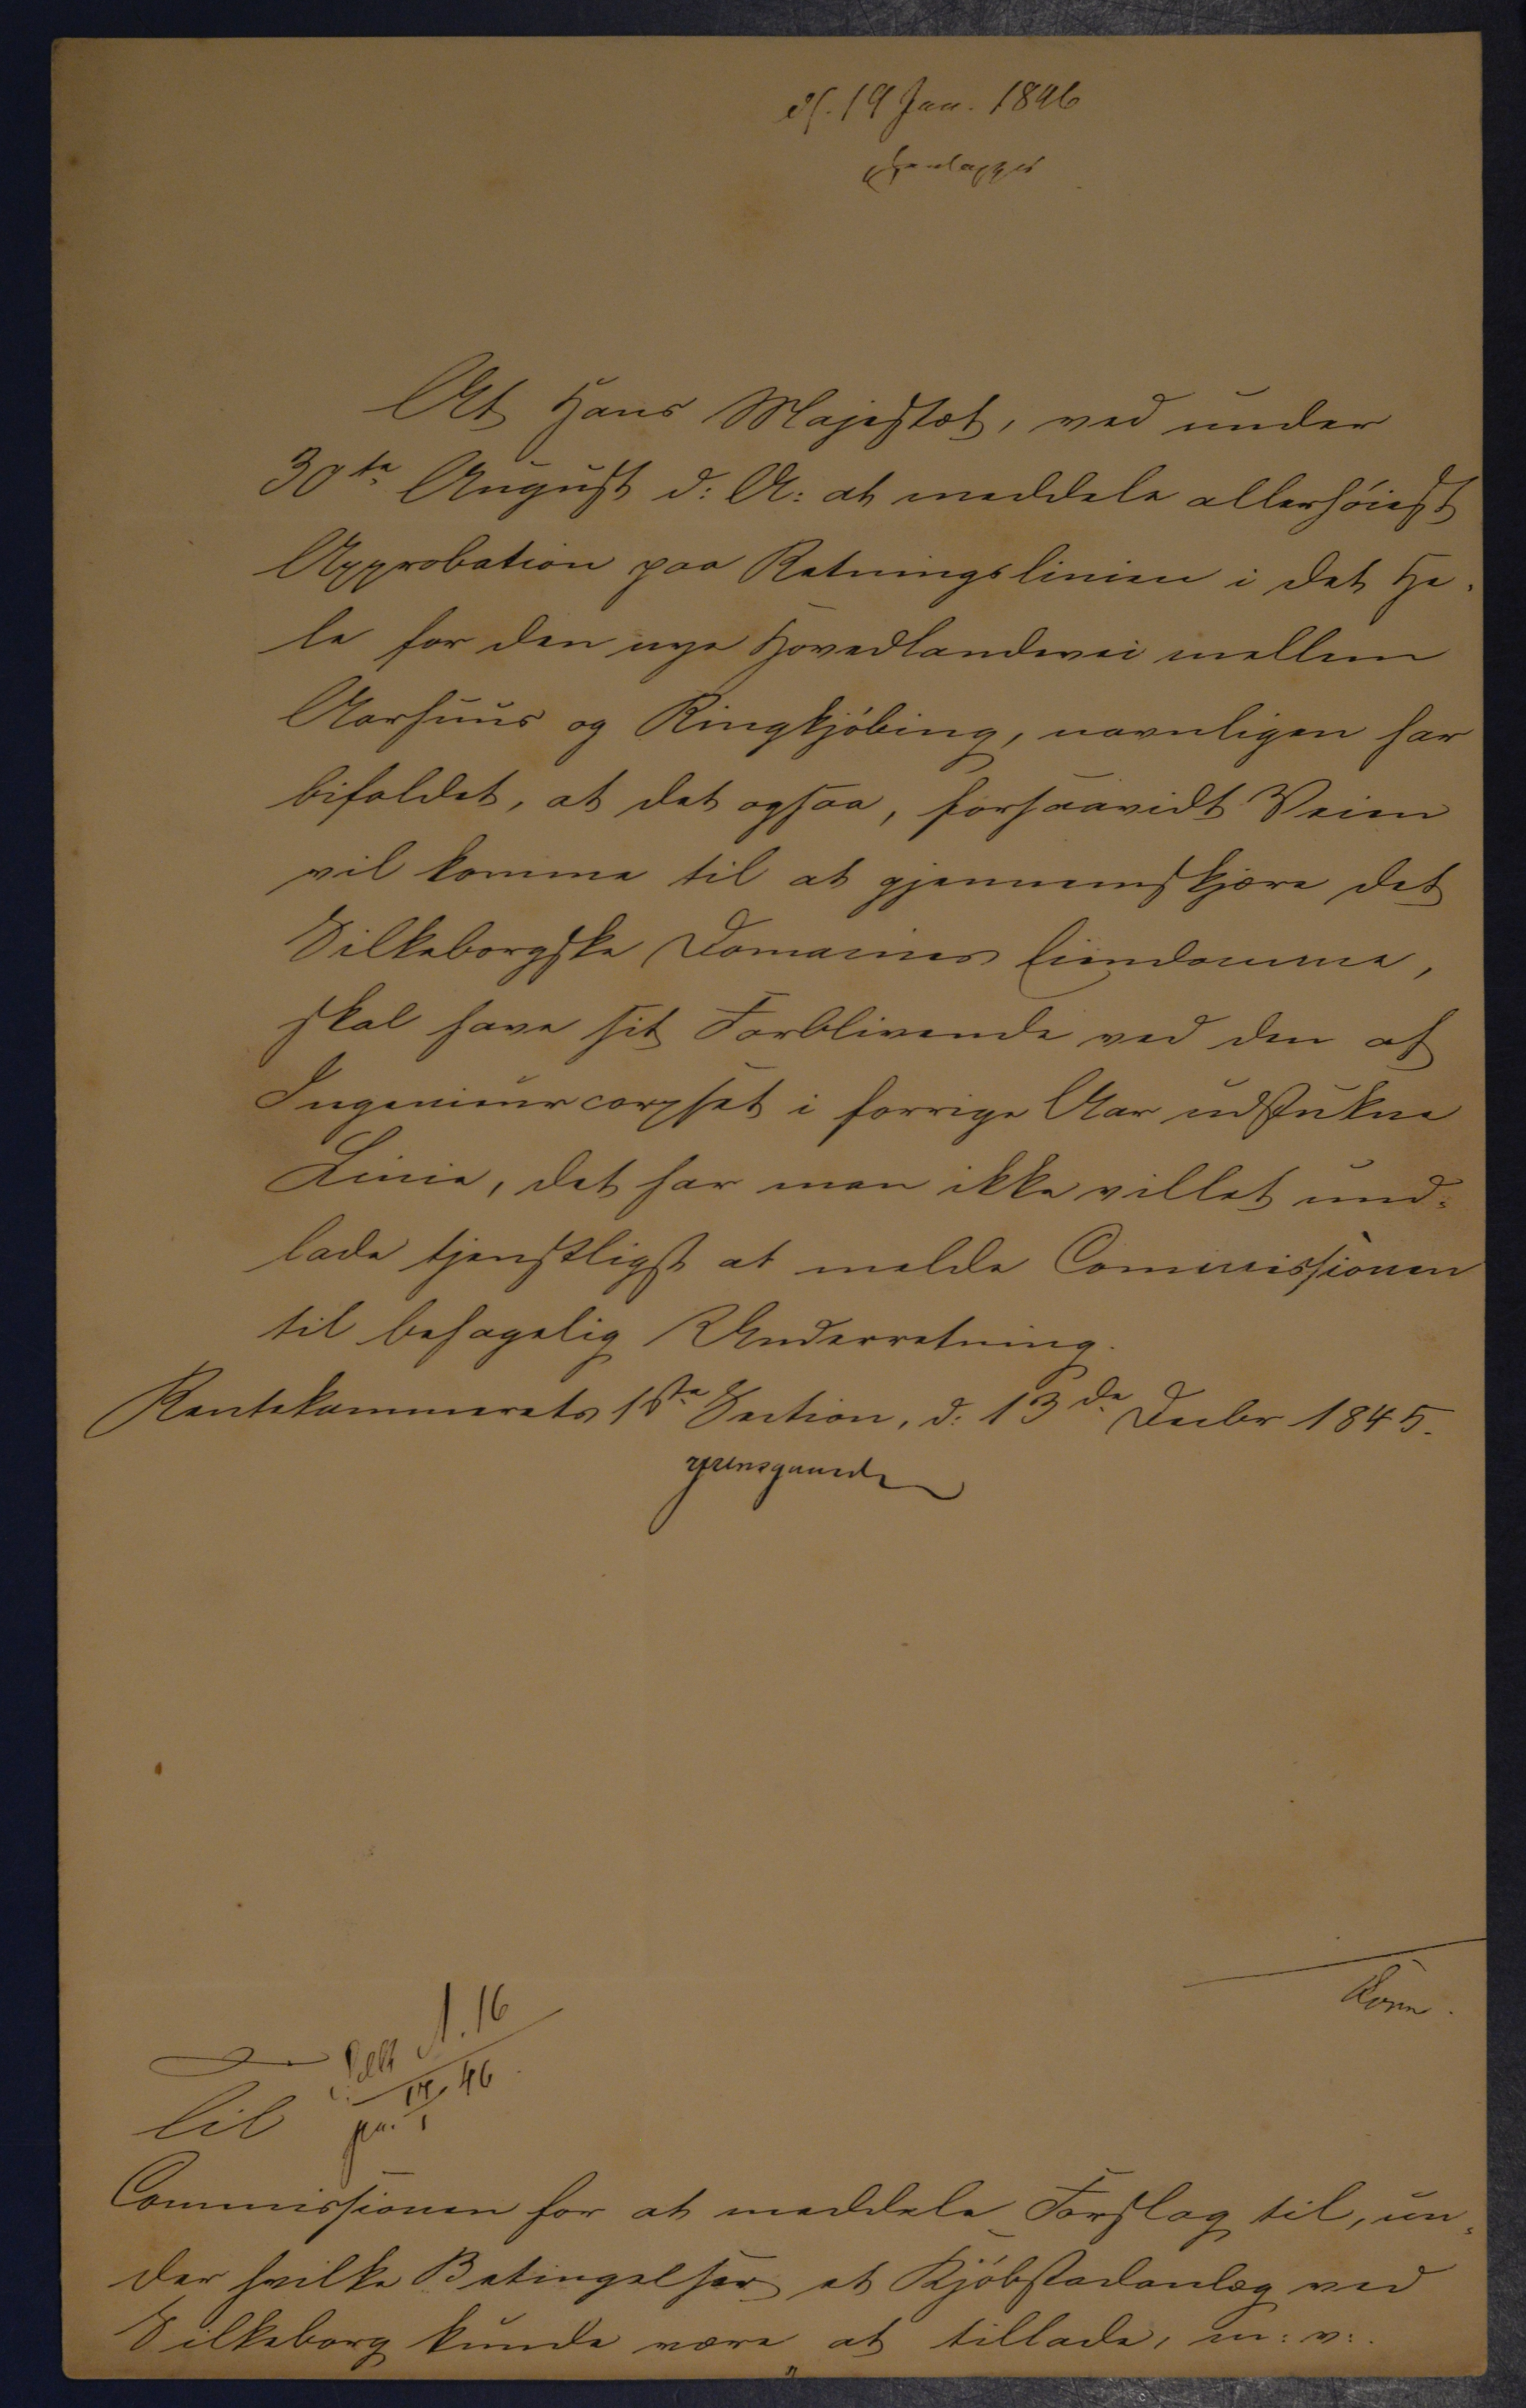 d. 19 Jan. 1846
henlægges
At Hans Majestæt, ved under
30te August d: A: at meddele allerhöiest
Approbation paa Retningslinien i det He-
le for den nye Hovedlandevei mellem
Aarhuus og Ringkjöbing, navnligen har
bifaldet, at det ogsaa, forsaavidt Veien
vil komme til at gjennemskjære det
Silkeborgske Domaines Eiendomme,
skal have sit Forblivende ved den af
Ingenieurcorpset i forrige Aar udstukne
Linie, det har man ikke villet und-
lade tjenstligst at melde Commissionen
til behagelig Underretning.
Rentekammerets 1ste Section, d: 13de Decbr 1845.
N. 16
17/1 46
Til
Commissionen for at meddele Forslag til, un-
der hvilke Betingelser et Kjöbstadanlæg ved
Silkeborg kunde være at tillade, m: v:.